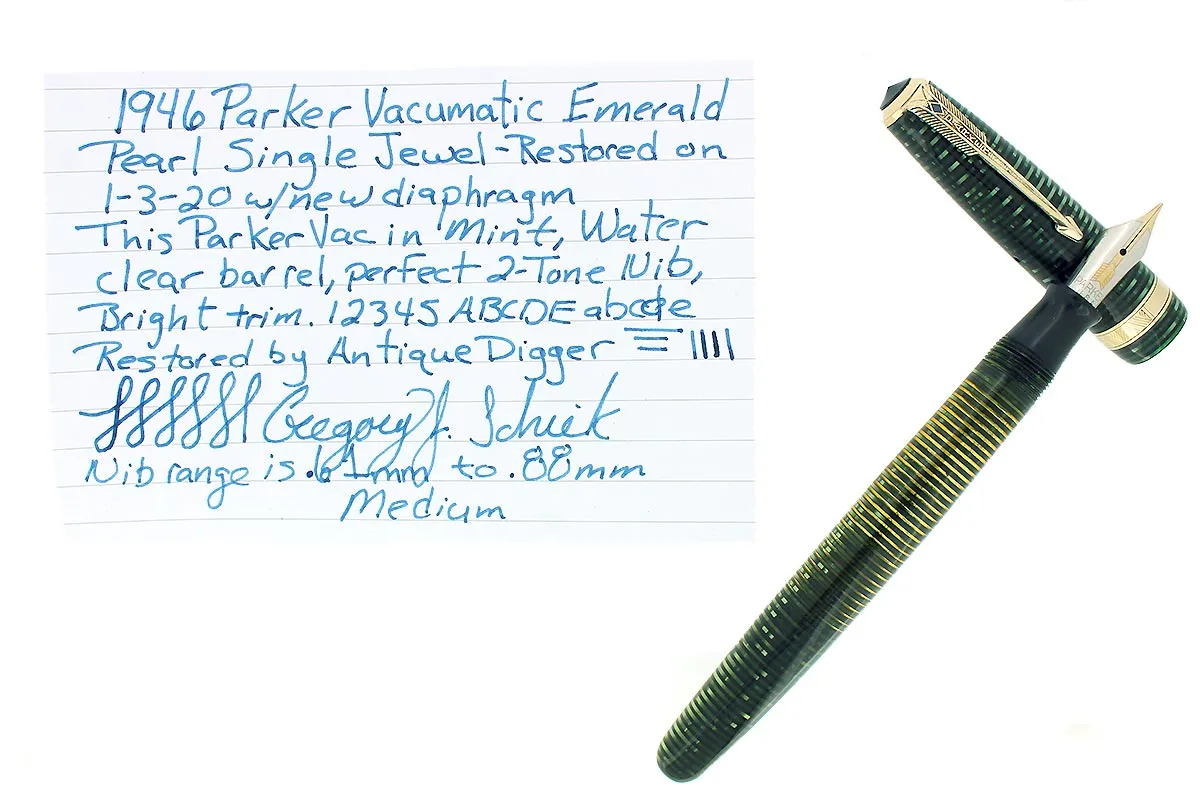 1946 Parker Vacumatic Emerald
Pearl Single Jewel-Restored on
1-3-20 w/new diaphragm
This Parker Vac in Mint, Water
clear barrel, perfect 2-Tone Nib,
Bright trim. 12345 ABCDE abcde
Restored by Antique Digger
Gregory J. Schiek
Nib range is .61mm to .88mm
Medium
PARKER